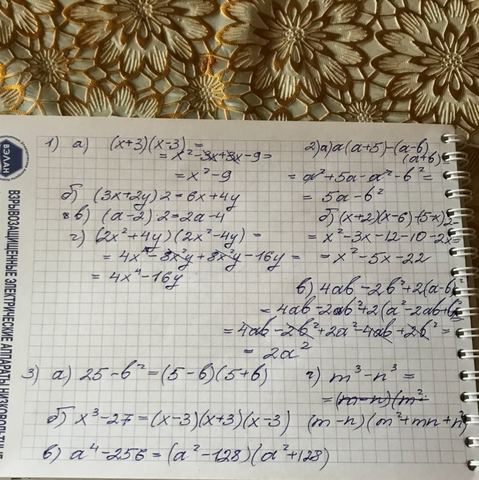 ВЭЛАН
ВЗРЫВОЗАЩИЩЕННЫЕ ЭЛЕКТРИЧЕСКИЕ АППАРАТЫ
1) а) (x+3)(x-3) =
= x² - 3x + 3x - 9 =
= x² - 9
б) (3x+2y) 2 = 6x + 4y
в) (a-2) 2 = 2a - 4
г) (2x² + 4y)(2x² - 4y) =
= 4x⁴ - 8x²y + 8x²y - 16y =
= 4x⁴ - 16y
2) а) a(a+5) - (a-b)
(a+b)
= a² + 5a - a² - b² =
= 5a - b²
б) (x+2)(x-6) - (5-x)2
= x² - 3x - 12 - 10 - 2x =
= x² - 5x - 22
в) 4ab - 2b² + 2(a-b)²
= 4ab - 2ab² + 2(a² - 2ab + b²
= 4ab - 2b² + 2a² - 4ab + 2b² =
= 2a²
3) а) 25 - b² = (5-b)(5+b)
б) x³ - 27 = (x-3)(x+3)(x-3)
в) a⁴ - 256 = (a² - 128)(a² + 128)
г) m³ - n³ =
= (m-n)(m²
(m-n)(m² + mn + n²)